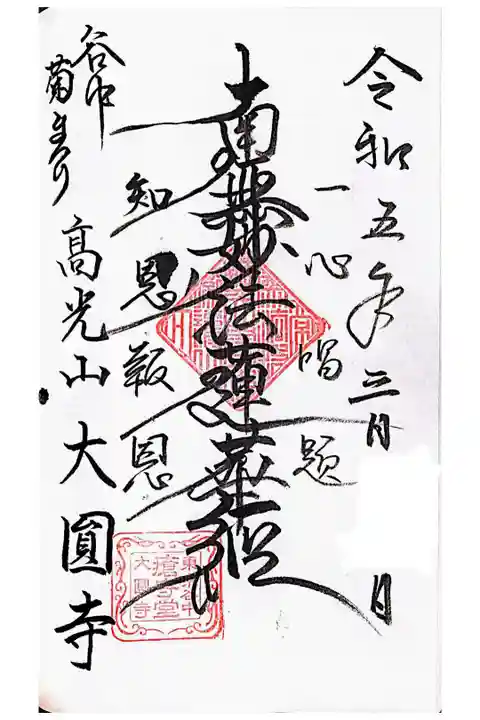 令和五年三月 日
一心唱題
南無妙法蓮華経
知恩報恩
谷中
菊まつり
高光山 大圓寺
東京谷中
瘡守堂
大圓寺